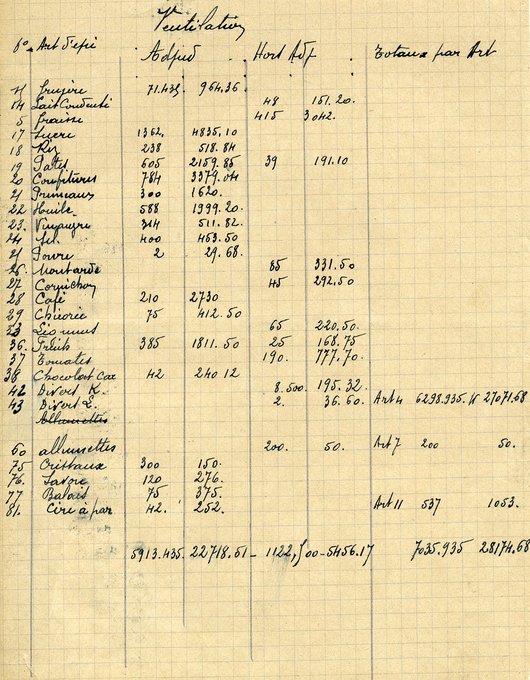 Ventilation
No Art d'épi Adjud Hort Adj Totaux par Art
gruyère 71.435 964.36
14 Lait Condensé 48 151.20.
5 graisse 415 3042.
17 Sucre 1362. 4835.10
18 Riz 238 518.84
19 Pates 605 2159.85 39 191.10
20 Confitures 784 3379.04
21 Pruneaux 300 1620.
22 Huile 588 1999.20.
23. Vinaigre 314 511.82.
24 Sel 400 463.50
25 Poivre 2 29.68.
26. Moutarde 85 331.50
27 Cornichon 45 292.50
28 Café 210 2730
29 Chicorée 75 412.50
33 Légumes 65 220.50
36. Fruits 385 1811.50 25 168.75
37 Tomates 190. 777.70.
38 Chocolat Cac 42 240.12
42 Divers K. 8.500 195.32
43 Divers L. 2. 36.60. Art 4 6298.935. 27071.68
Allumettes
60 allumettes 200. 50. Art 7 200 50.
75 Cristaux 300 150.
76. Savon 120 276.
77 Balais 75 375.
81. Cire à par 42. 252. Art 11 537 1053.
5913.435. 22718.51 - 1122,500 - 5456.17 7035.935 28174.68